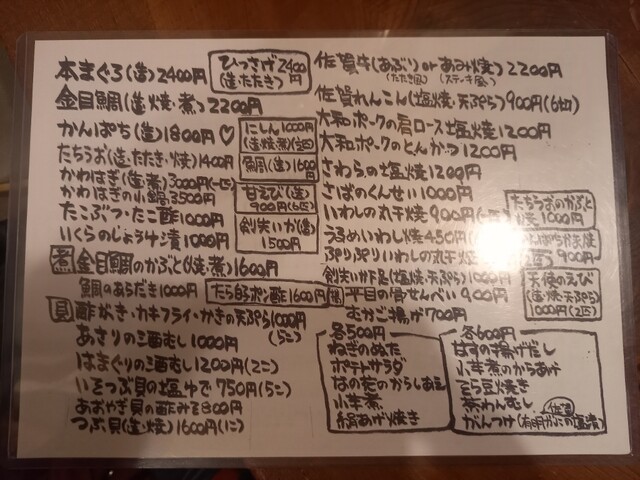 本まぐろ(造)2400円
ひっさげ2400円
(造・たたき)
金目鯛(造・焼・煮)2200円
かんぱち(造)1800円♡
にしん1000円
(造・焼・煮)
鯛(造)1600円
たちうお(造・たたき・焼)1400円
かわはぎ(造・煮)3000円
かわはぎの小鍋3500
甘えび(造)
900円(6匹)
たこぶつ・たこ酢1000円
剣先いか(造)
1500円
いくらのじょうゆ漬1000円
煮 金目鯛のかぶと(焼・煮)1600円
鯛のあらだき1000円
たら白子ポン酢1600円
貝 酢がき・カキフライ・かきの天ぷら1000円
(5こ)
あさりの酒むし1000円
はまぐりの酒むし1200円(2こ)
いそつぶ貝の塩ゆで750円(5こ)
あおやぎ貝の酢みそ800円
つぶ貝(造・焼)1600円(1こ)
佐賀牛(あぶり)or あみ焼)2200円
(たたき風)(ステーキ風)
佐賀れんこん(塩焼・天ぷら)900円(6切)
大和ポークの肩ロース塩焼1200円
大和ポークのとんかつ1200円
さわらの塩焼1200円
さばのくんせい1000円
いわしの丸干焼900円
うるめいわし焼450円
ぷりぷりいわしの丸干
剣先いか下足(塩焼・天ぷら)1000円
平目の骨せんべい900円
むかご揚げ700円
たちうおのかぶと
焼1000円
900円
天使のえび
(造・焼・天ぷら)
1000円(2匹)
各500円
ねぎのぬた
ポテトサラダ
なの花のからしあえ
小芋煮
絹あげ焼き
各600円
甘すの揚げだし
小芋煮のからあげ
そら豆焼き
茶わんむし
佐賀
がんつけ(有明がにの塩漬)